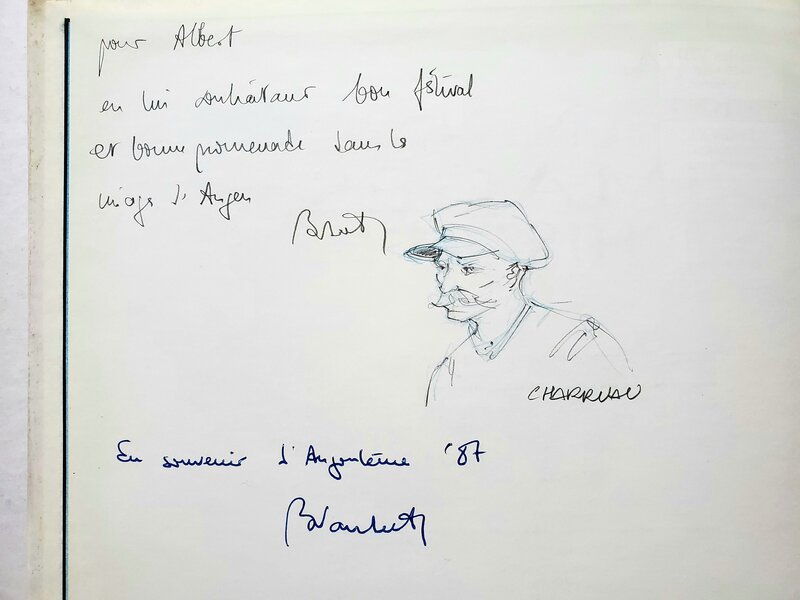 pour Albert
en lui souhaitant bon féstival
et bonne promenade dans le
d'Angers
CHARRUAU
En souvenir d'Angoulême '87